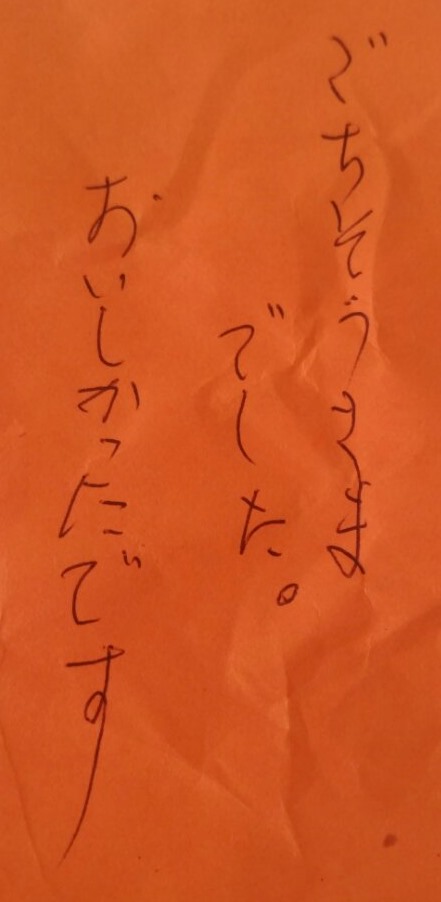 ごちそうさま
でした。
おいしかったです